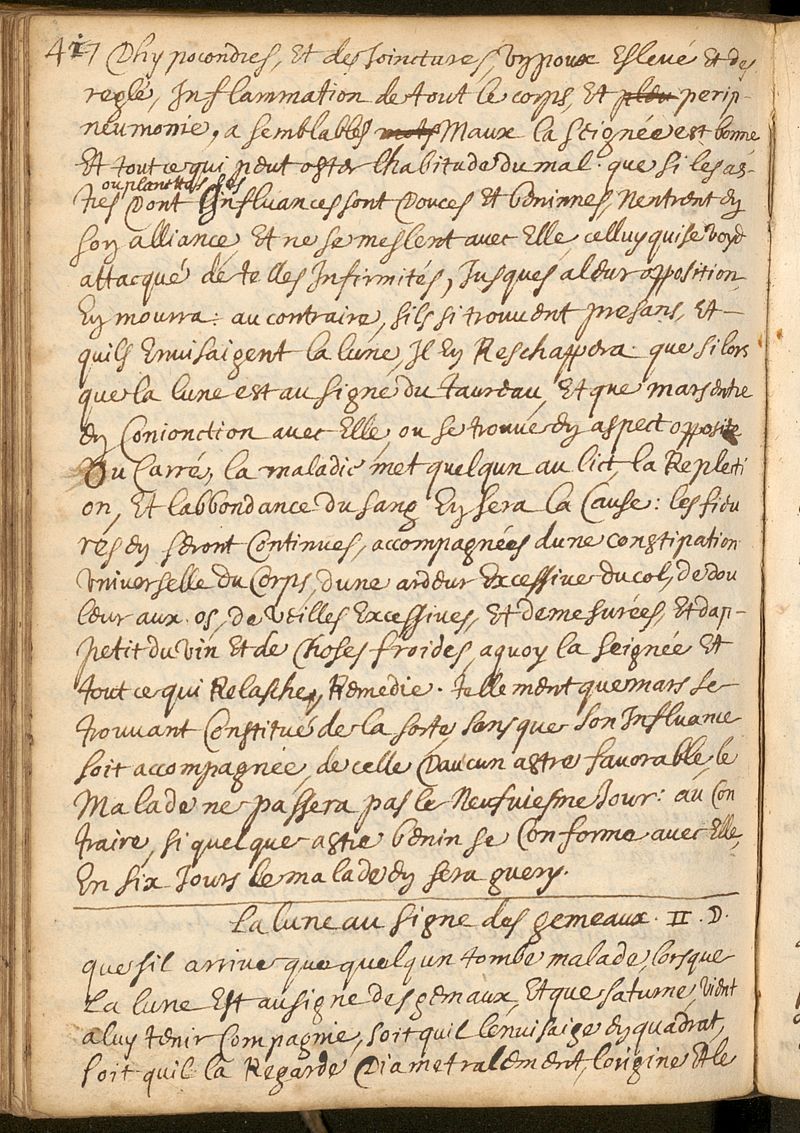 417 Dhypocondres, Et des Joinctures, Vn poux Eslevé et des
reglé, Inflammation de tout le corps, Et pleu perip-
neumonie, a semblables mots Maux la seignée est bonne
Et tout ce qui peut oster lhabitude du mal. que si les as-
ou planettes ses
tres Dont Influances sont Douces Et beninnes, Nentrent en
son alliance, Et ne se meslent avec Elle, celluy qui se voyd
attacqué de telles Infirmités, Jusques a leur opposition
En mourra: au contraire, sils si trouvent presans, Et
quils Envisaigent la lune, Il En Reschappera. que si lors
que la lune est au signe du taureau, Et que mars entre
en Conionction avec Elle, ou se trouve en aspect opposite
Ou Carré, la maladie met quelqun au lict, la Repleti
on, Et labbondance du sang En sera la Cause: les fieu
res en seront Continues, accompagnées dune constipation
Vniverselle du Corps, dune ardeur Excessive du col, de dou
leur aux os, de veilles Excessives, Et demesurées, Et dap-
petit du vin Et de Choses froides, a quoy la seignée Et
tout ce qui Relasche y Remedie. tellement que mars se
trouvant Constitué de la sorte sans que son Influance
soit accompagnée, de celle Daucun astre favorable, le
Malade ne passera pas le Neufuiesme Jour: au Con
traire, si quelque astre benin se Conforme avec Elle,
En six Jours le malade en sera guery.
La lune au signe des gemeaux. II. D.
que sil arrive que quelqun tombe malade, lorsque
La lune Est au signe des gemaux, Et que saturne, vient
a luy tenir Compagnie, soit quil lenvisaige en quadrat,
soit quil la Regarde Diametralement, lorigine Et le